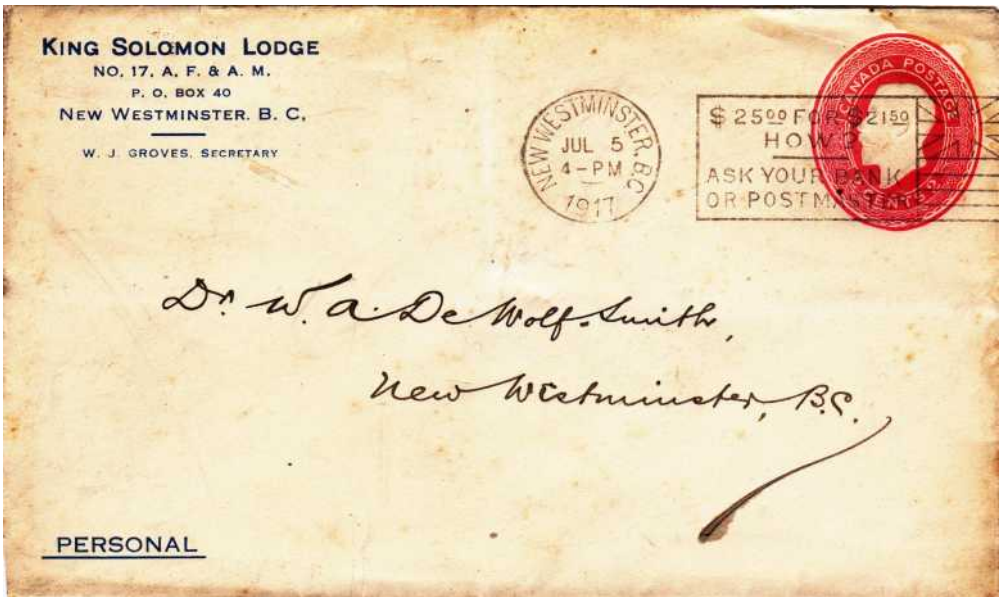 KING SOLOMON LODGE
NO. 17, A. F. & A. M.
P. O. BOX 40
NEW WESTMINSTER. B. C,
W. J. GROVES, SECRETARY
NEW WESTMINSTER. B.C
JUL 5
4-PM
1917
$ 25 00 FOR $ 21 50
HOW?
ASK YOUR BANK
OR POSTMASTER
CANADA POSTAGE
Dr. W. A. De Wolf-Smith,
New Westminster, B.C.
PERSONAL